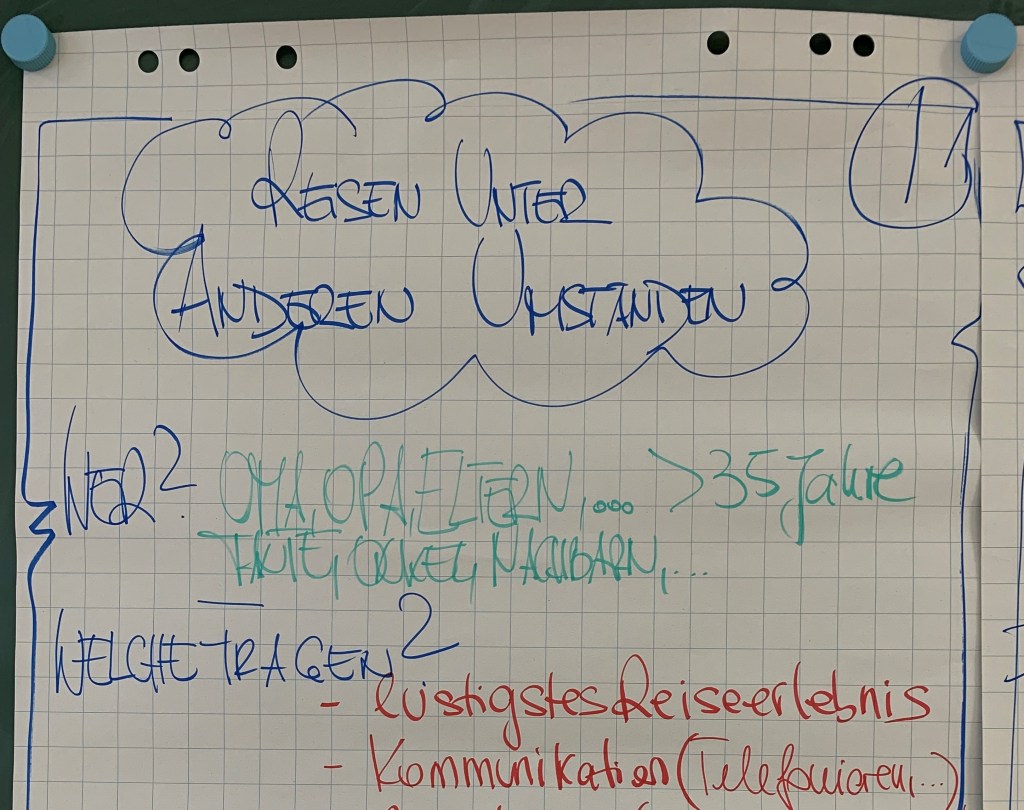 1
REISEN UNTER
ANDEREN UMSTÄNDEN
WER? OMA, OPA, ELTERN, ... >35 Jahre
TANTE, ONKEL, NACHBARN, ...
WELCHE FRAGEN?
- lustigstes Reiseerlebnis
- Kommunikation (Telefonieren, ...)